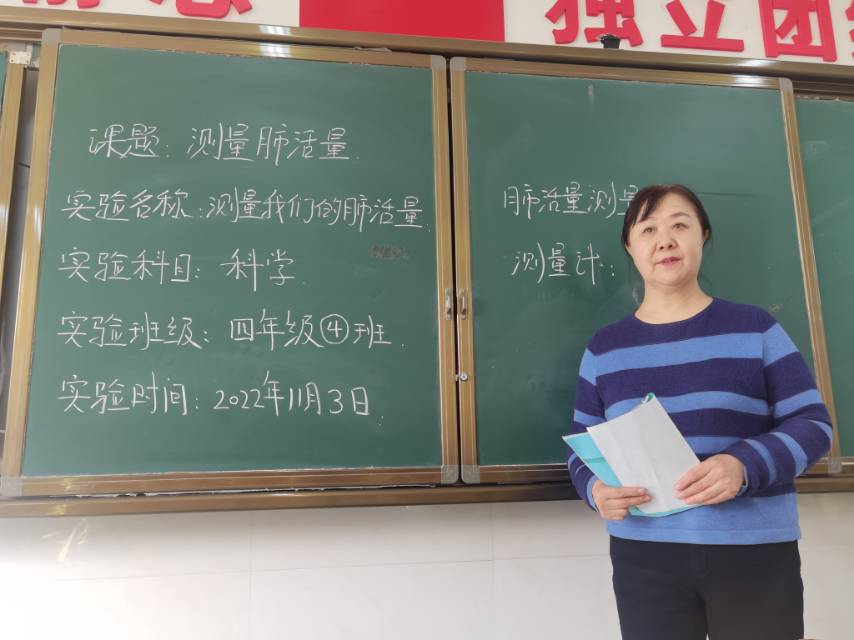 独立团结
课题：测量肺活量.
实验名称：测量我们的肺活量.
实验科目：科学.
实验班级：四年级④班.
实验时间：2022年11月3日.
肺活量测量
测量计：